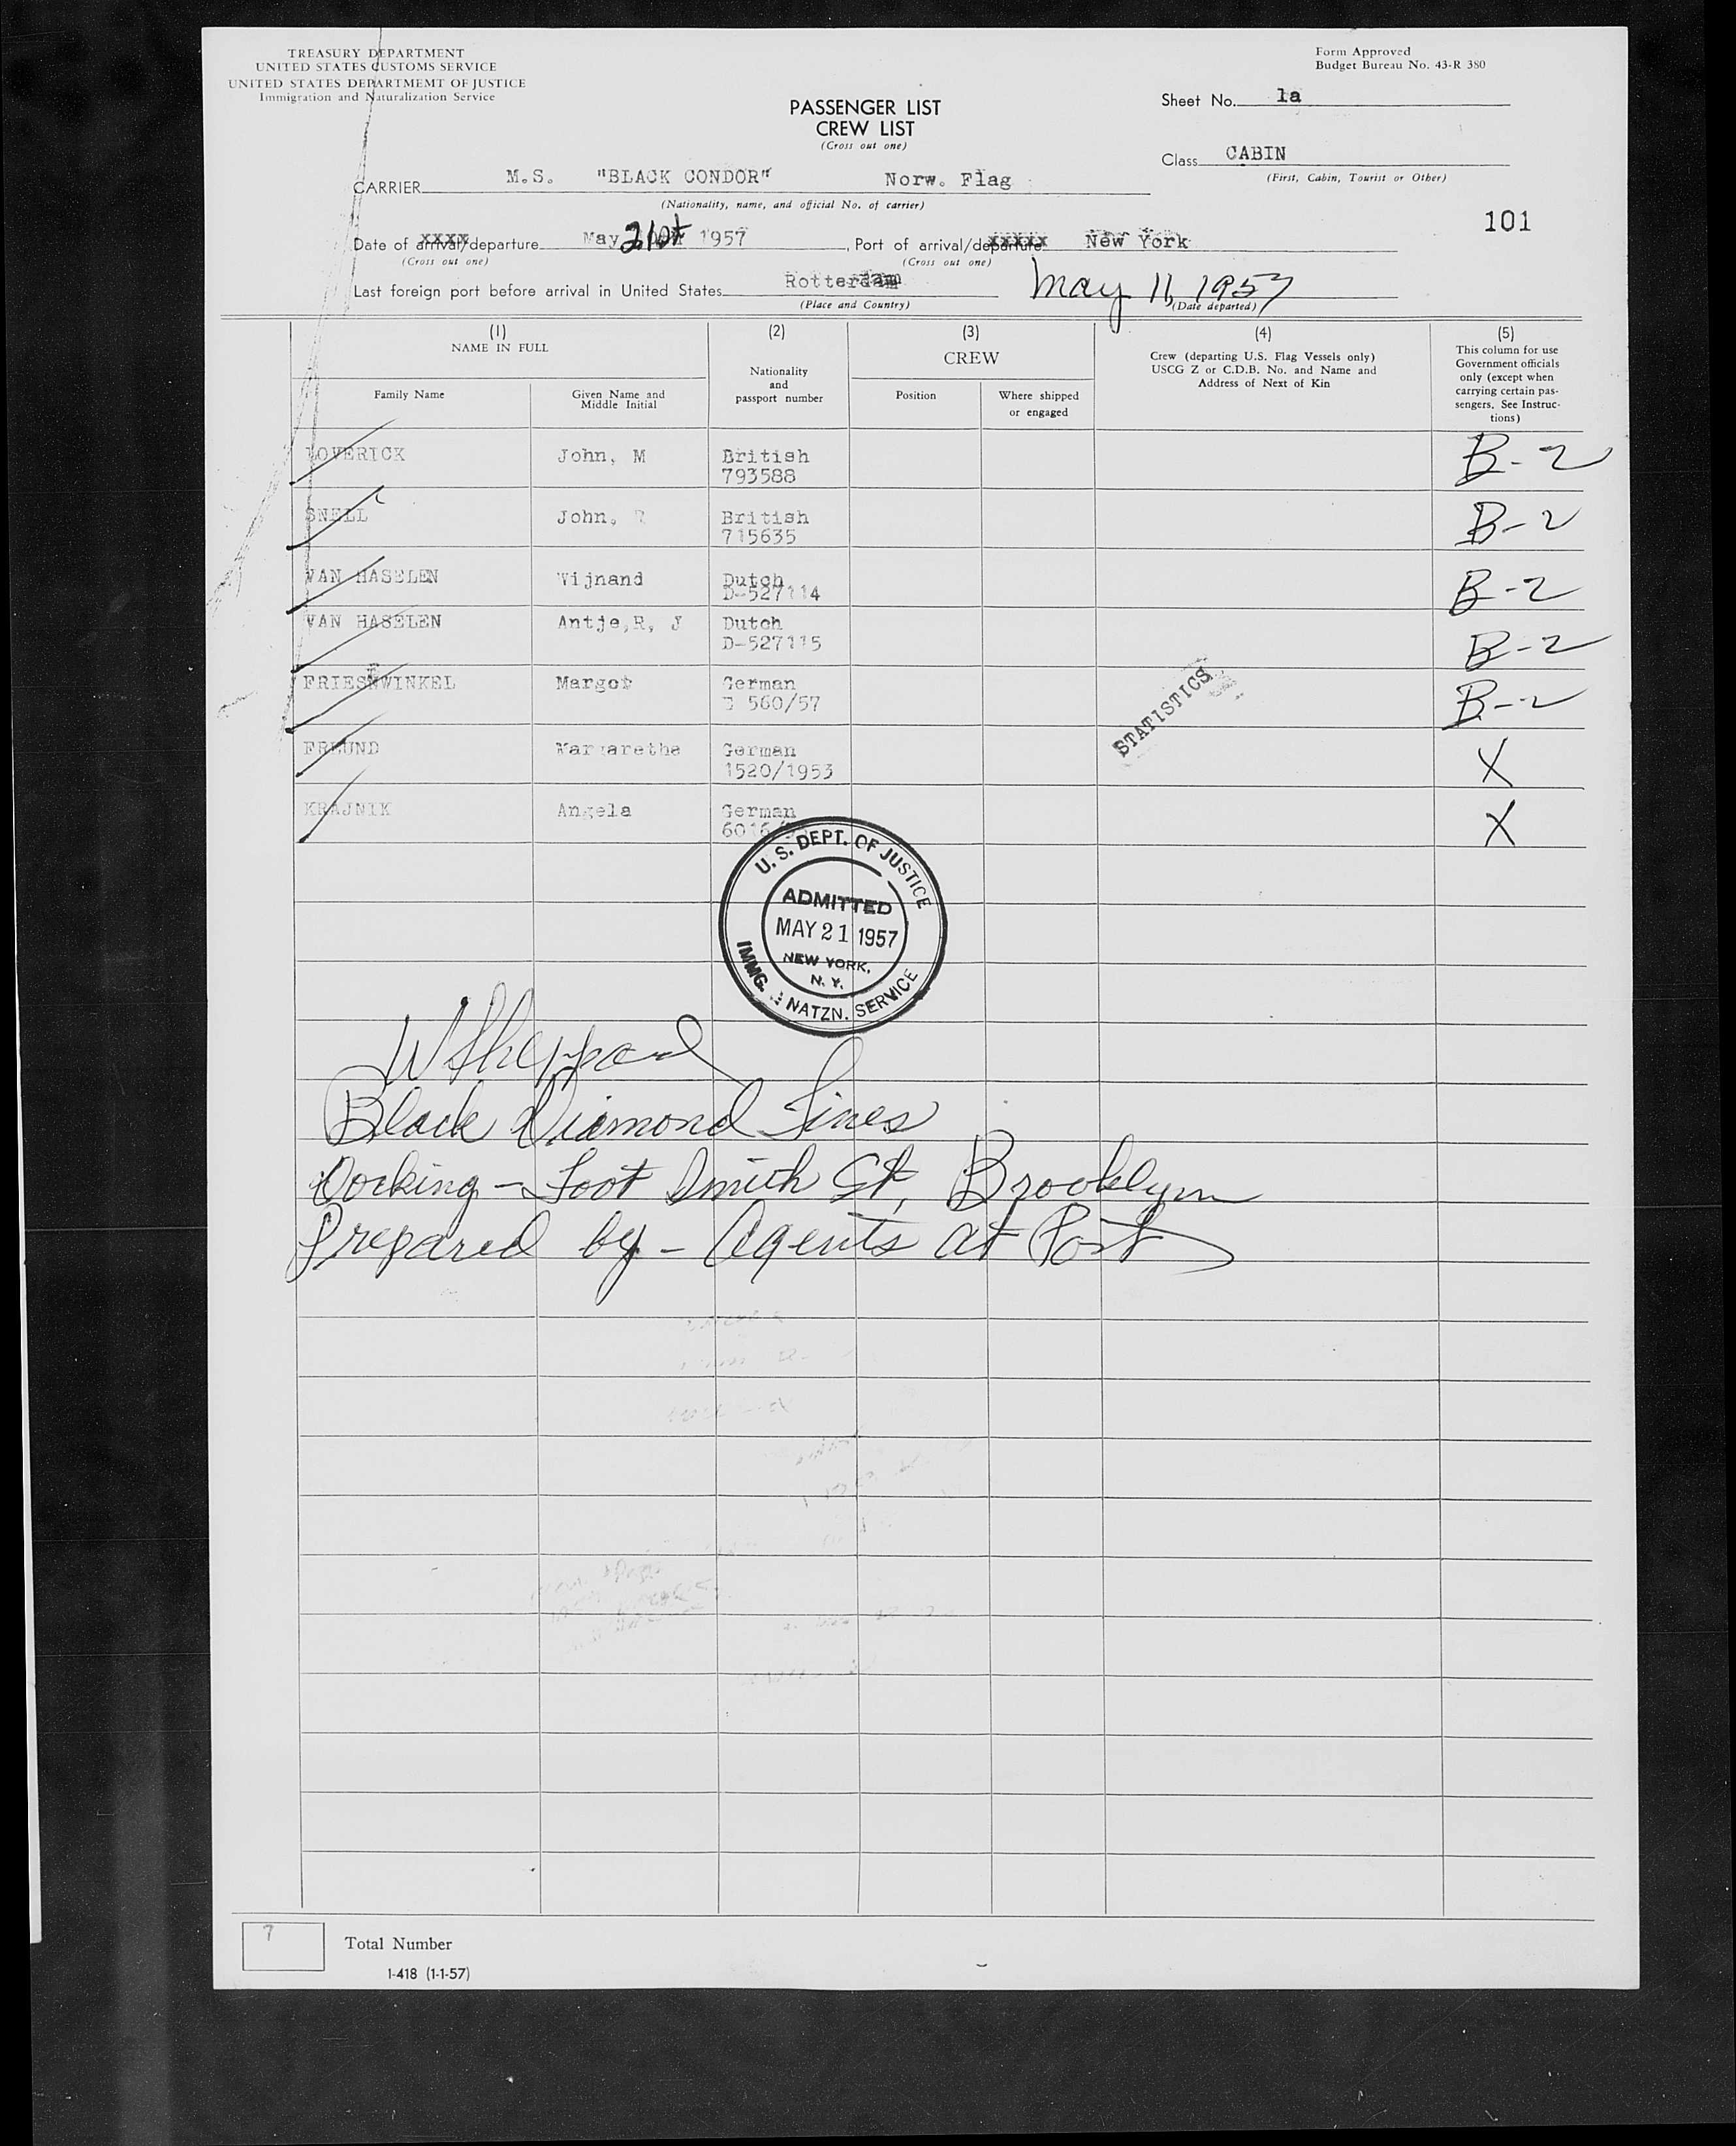 TREASURY DEPARTMENT
UNITED STATES CUSTOMS SERVICE
UNITED STATES DEPARTMEMT OF JUSTICE
Immigration and Naturalization Service
Form Approved
Budget Bureau No. 43-R 380
PASSENGER LIST
CREW LIST
(Cross out one)
Sheet No. 1a
Class CABIN
(First, Cabin, Tourist or Other)
CARRIER M.S. "BLACK CONDOR" Norw. Flag
(Nationality, name, and official No. of carrier)
101
Date of arrival/departure May 21st 1957, Port of arrival/departure New York
(Cross out one) (Cross out one)
Last foreign port before arrival in United States Rotterdam May 11, 1957
(Place and Country) (Date departed)
(1) (2) (3) (4) (5)
NAME IN FULL
Family Name
Given Name and
Middle Initial
Nationality
and
passport number
CREW
Position
Where shipped
or engaged
Crew (departing U.S. Flag Vessels only)
USCG Z or C.D.B. No. and Name and
Address of Next of Kin
This column for use
Government officials
only (except when
carrying certain pas-
sengers. See Instruc-
tions)
LOVERICK John, M British B-2
793588
SNELL John, British B-2
715635
VAN HASELEN Wijnand Dutch B-2
D-527114
VAN HASELEN Antje,R, J Dutch B-2
D-527115
FRIESEWINKEL Margot German B-2
560/57
STATISTICS
FREUND Margarethe German X
1520/1953
KRAJNIK Angela German X
U. S. DEPT. OF JUSTICE
ADMITTED
MAY 21 1957
NEW YORK,
N. Y.
IMMG. & NATZN. SERVICE
W Sheppard
Black Diamond Lines
Docking - Foot Smith St, Brooklyn
Prepared by - Agents at Port
7
Total Number
I-418 (1-1-57)